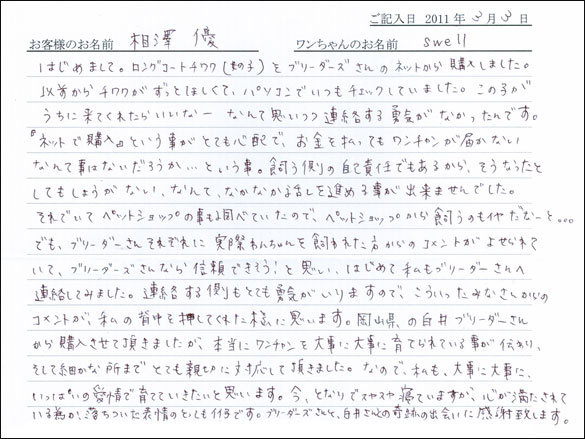 ご記入日 2011年 3月 3日
お客様のお名前 相澤 優 ワンちゃんのお名前 swell
はじめまして。ロングコートチワワ(女の子)をブリーダーズさんのネットから購入しました。
以前からチワワがずっとほしくて、パソコンでいつもチェックしていました。この子が
うちに来てくれたらいいなー なんて思いつつ連絡する勇気がなかったんです。
『ネットで購入』という事がとても心配で、お金を払ってもワンチャンが届かない
なんて事はないだろうか…という事。飼う側の自己責任でもあるから、そうなったと
してもしょうがない、なんて、なかなか話しを進める事が出来ませんでした。
それでいてペットショップの事も調べていたので、ペットショップから飼うのもイヤだなーと…
でも、ブリーダーさんそれぞれに実際わんちゃんを飼われた方からのコメントがよせられて
いて、ブリーダーズさんなら信頼できそう!と思い、はじめて私もブリーダーさんへ
連絡してみました。連絡する側もとても勇気がいりますので、こういったみなさんからの
コメントが、私の背中を押してくれた様に思います。岡山県の白井ブリーダーさん
から購入させて頂きましたが、本当にワンチャンを大事に大事に育てられている事が伝わり、
そして細かな所までとても親切に対応して頂きました。なので、私も、大事に大事に、
いっぱいの愛情で育てていきたいと思います。今、となりでスヤスヤ寝ていますが、心が満たされて
いる為か、落ちついた表情のとてもイイ子です。ブリーダーズさんと、白井さんとの奇跡の出会いに感謝致します。